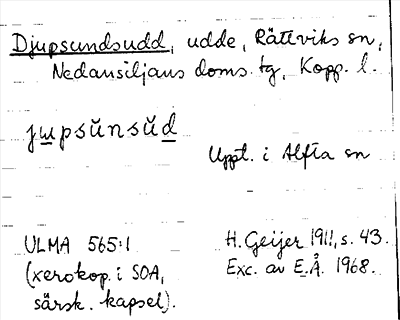 Djupsundsudd, udde, Rättviks sn,
Nedansiljans doms. tg, Kopp. l.
jupsŭnsŭd
Uppt. i Alfta sn
ULMA 565:1
(xerokop. i SOA,
särsk. kapsel).
H. Geijer 1911, s. 43.
Exc. av E.Å. 1968.